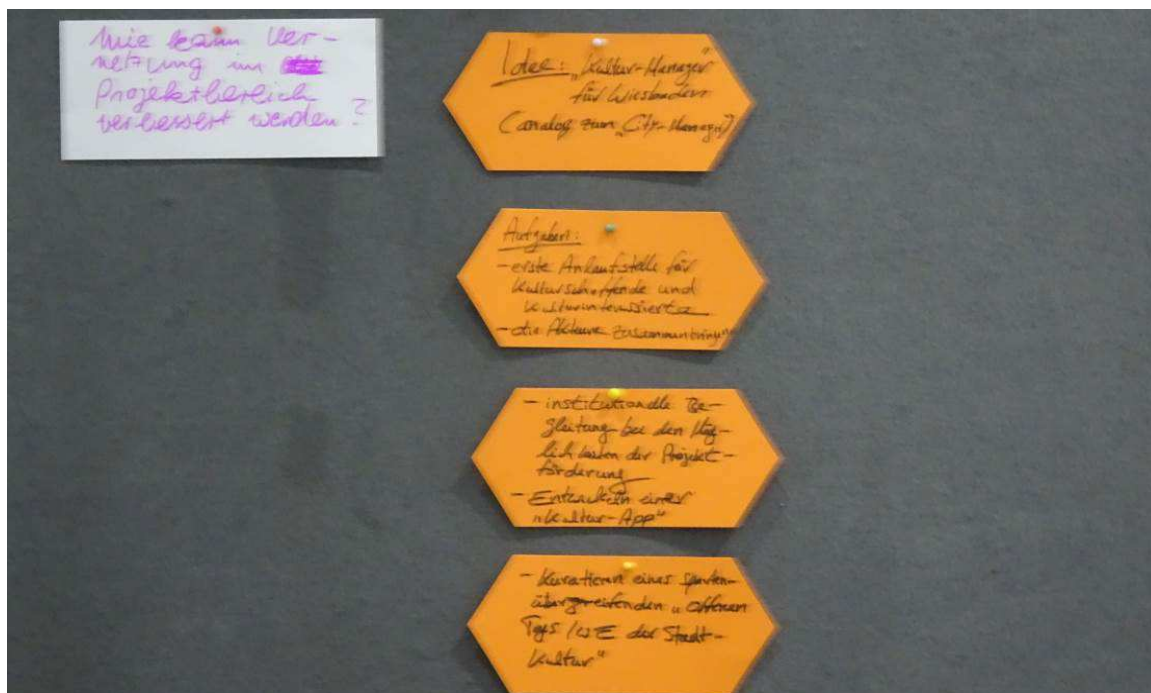 Wie kann Ver-
netzung im
Projektbereich
verbessert werden?
Idee: „Kultur-Manager"
für Wiesbaden
(analog zum „City-Manager")
Aufgaben:
- erste Anlaufstelle für
Kulturschaffende und
Kulturinteressierte
- die Akteure zusammenbringen
- institutionelle Be-
gleitung bei den Mög-
lichkeiten der Projekt-
förderung
- Entwickeln einer
„Kultur-App"
- Kuratieren eines sparten-
übergreifenden „Offenen
Tags/WE der Stadt-
kultur"